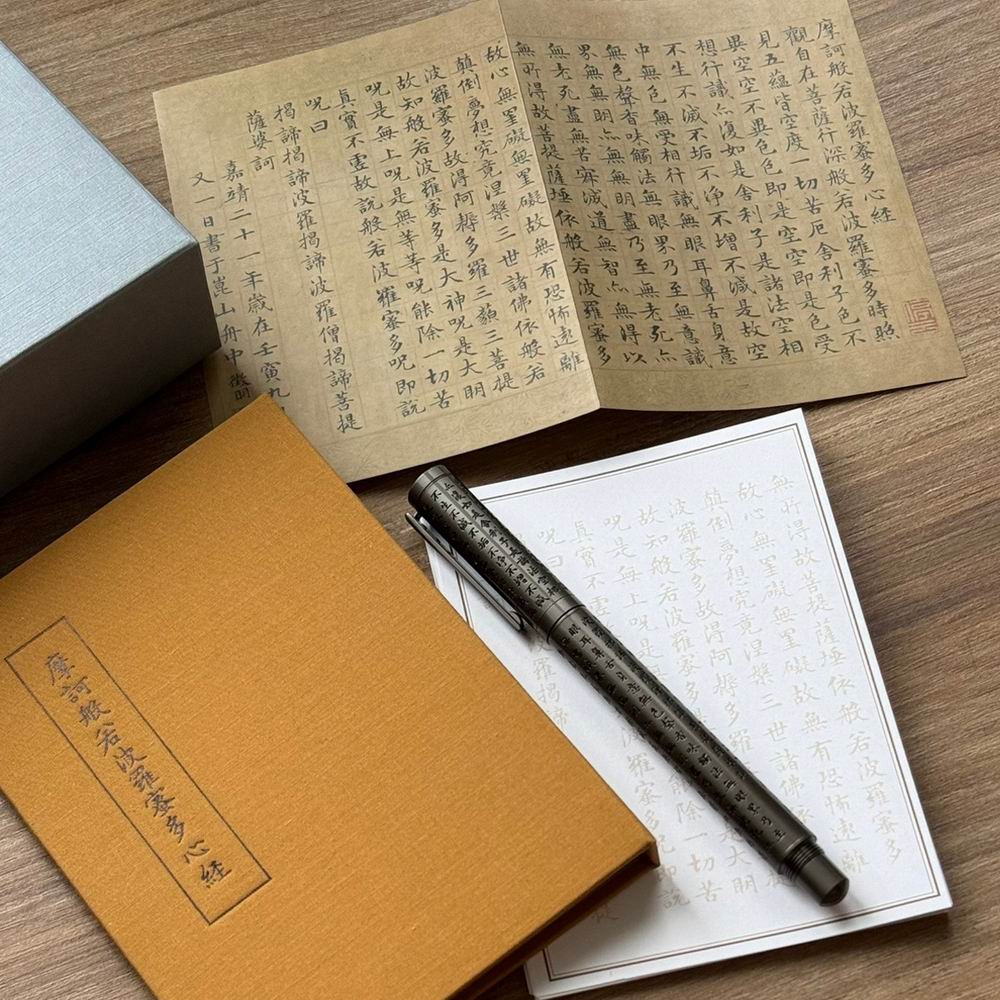 摩訶般若波羅蜜多心經
觀自在菩薩行深般若波羅蜜多時照
見五蘊皆空度一切苦厄舍利子色不
異空空不異色色即是空空即是色受
想行識亦復如是舍利子是諸法空相
不生不滅不垢不淨不增不減是故空
中無色無受相行識無眼耳鼻舌身意
無色聲香味觸法無眼界乃至無意識
界無無明亦無無明盡乃至無老死亦
無老死盡無苦寂滅道無智亦無得以
無所得故菩提薩埵依般若波羅蜜多
故心無罣礙無罣礙故無有恐怖遠離
顛倒夢想究竟涅槃三世諸佛依般若
波羅蜜多故得阿耨多羅三藐三菩提
故知般若波羅蜜多是大神呪是大明
呪是無上呪是無等等呪能除一切苦
真實不虛故說般若波羅蜜多呪即說
呪曰
揭諦揭諦波羅揭諦波羅僧揭諦菩提
薩婆訶
嘉靖二十一年歲在壬寅九
又一日書于崑山舟中 徵明
摩訶般若波羅蜜多心経
復如是舍利子是諸法空相
不生不滅不垢不淨不增不減
無所得故菩提薩埵依般若波羅蜜多
故心無罣礙無罣礙故無有恐怖遠離
顛倒夢想究竟涅槃三世諸佛
波羅蜜多故得阿耨多
故知般若波羅蜜多 是大明
呪是無上呪 能除一切苦
真實不虛 波羅蜜多 即説
呪曰
波羅揭諦